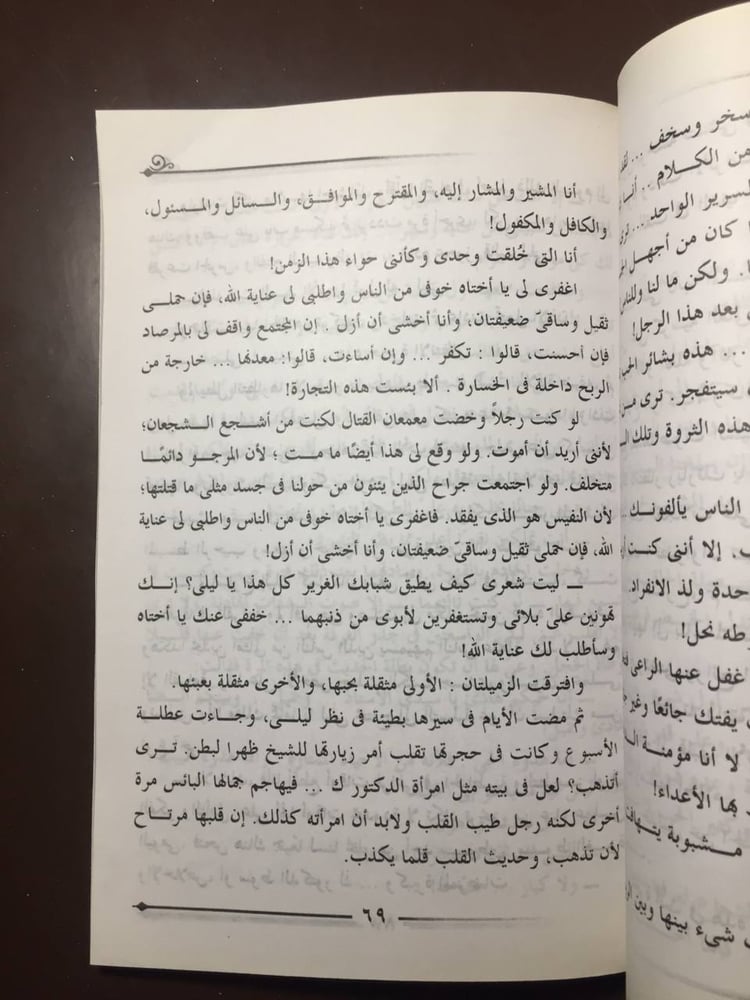 أنا المشير والمشار إليه، والمقترح والموافق، والسائل والمسئول،
والكافل والمكفول!
أنا التى خُلقت وحدى وكأننى حواء هذا الزمن!
اغفرى لى يا أختاه خوفى من الناس واطلبى لى عناية الله، فإن حملى
ثقيل وساقىّ ضعيفتان، وأنا أخشى أن أزل . إن المجتمع واقف لى بالمرصاد
فإن أحسنت، قالوا : تكفر ... وإن أساءت، قالوا: معدنها ... خارجة من
الربح داخلة فى الخسارة . ألا بئست هذه التجارة!
لو كنت رجلاً وخضت معمعان القتال لكنت من أشجع الشجعان؛
لأننى أريد أن أموت. ولو وقع لى هذا أيضًا ما مت ؛ لأن المرجو دائمًا
متخلف. ولو اجتمعت جراح الذين يئنون من حولنا فى جسد مثلى ما قتلتها؛
لأن النفيس هو الذى يفقد. فاغفرى يا أختاه خوفى من الناس واطلبى لى عناية
الله، فإن حملى ثقيل وساقىّ ضعيفتان، وأنا أخشى أن أزل!
ــ ليت شعرى كيف يطيق شبابك الغرير كل هذا يا ليلى؟ إنك
تهونين علىّ بلائى وتستغفرين لأبوى من ذنبهما ... خففى عنك يا أختاه
وسأطلب لك عناية الله!
وافترقت الزميلتان : الأولى مثقلة بحبها، والأخرى مثقلة بعبئها.
ثم مضت الأيام فى سيرها بطيئة فى نظر ليلى، وجاءت عطلة
الأسبوع وكانت فى حجرتها تقلب أمر زيارتها للشيخ ظهرا لبطن. ترى
أتذهب؟ لعل فى بيته مثل امرأة الدكتور ك ... فيهاجم جمالها البائس مرة
أخرى لكنه رجل طيب القلب ولابد أن امرأته كذلك. إن قلبها مرتاح
لأن تذهب، وحديث القلب قلما يكذب.
٦٩
سخر وسخف ...
من الكلام ..
لسرير الواحد ...
كان من أجهل
ولكن ما لنا وللناس
بعد هذا الرجل!
... هذه بشائر
سيتفجر. ترى
هذه الثروة وتلك
الناس يألفونك
إلا أننى كنت
حدة ولذ الانفراد
نحل!
غفل عنها الراعى
يفتك جائعًا وغير
لا أنا مؤمنة
بها الأعداء!
مشبوبة
شىء بينها وبين